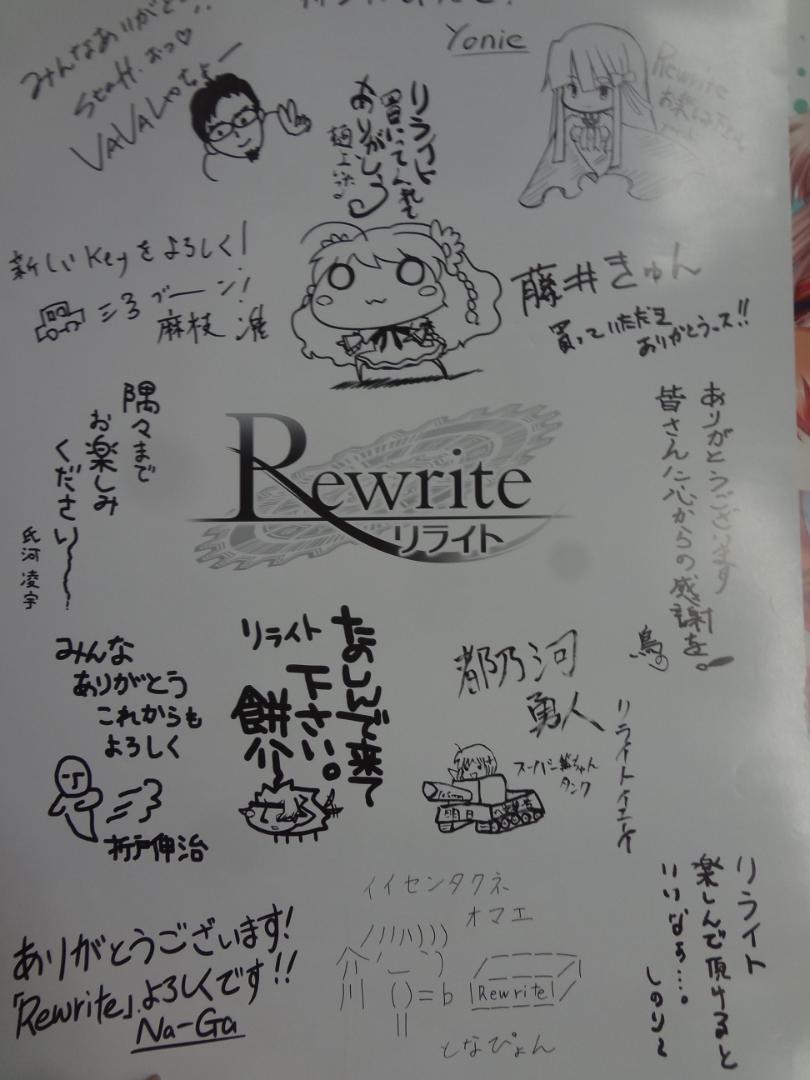 みんなありがとう!!
Staff. おつ♡
VAVAしゃちょー
Yonie
Rewrite
リライト
買ってくれて
ありがしょう
新しいKeyをよろしく!
ブーン!
麻枝 准
藤井きゅん
買っていただき
ありがとうっス!!
隅々まで
お楽しみ
くださいー
氏河凌宇
ありがとうございます
皆さんに心からの感謝を。
鳥の
Rewrite
リライト
みんな
ありがとう
これからも
よろしく
折戸伸治
リライト
たのしんで来て
下さい。
都乃河
勇人
スーパー
ちゃん
タンク
明日
イイセンタクネ
オマエ
Rewrite
となぴょん
リライト
楽しんで頂けると
いいなぁ…。
しのり〜
ありがとうございます!
「Rewrite」よろしくです!!
Na-Ga